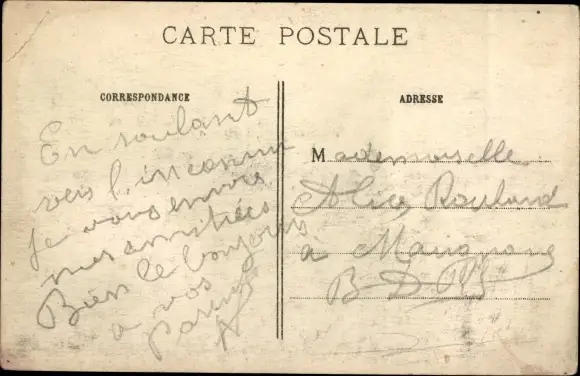 CARTE POSTALE
CORRESPONDANCE
En roulant
vers l'inconnu
je vous envoie
mes amitiés
Bien le bonjour
a vos
Parents
ADRESSE
Mademoiselle
Alice
a
B D R